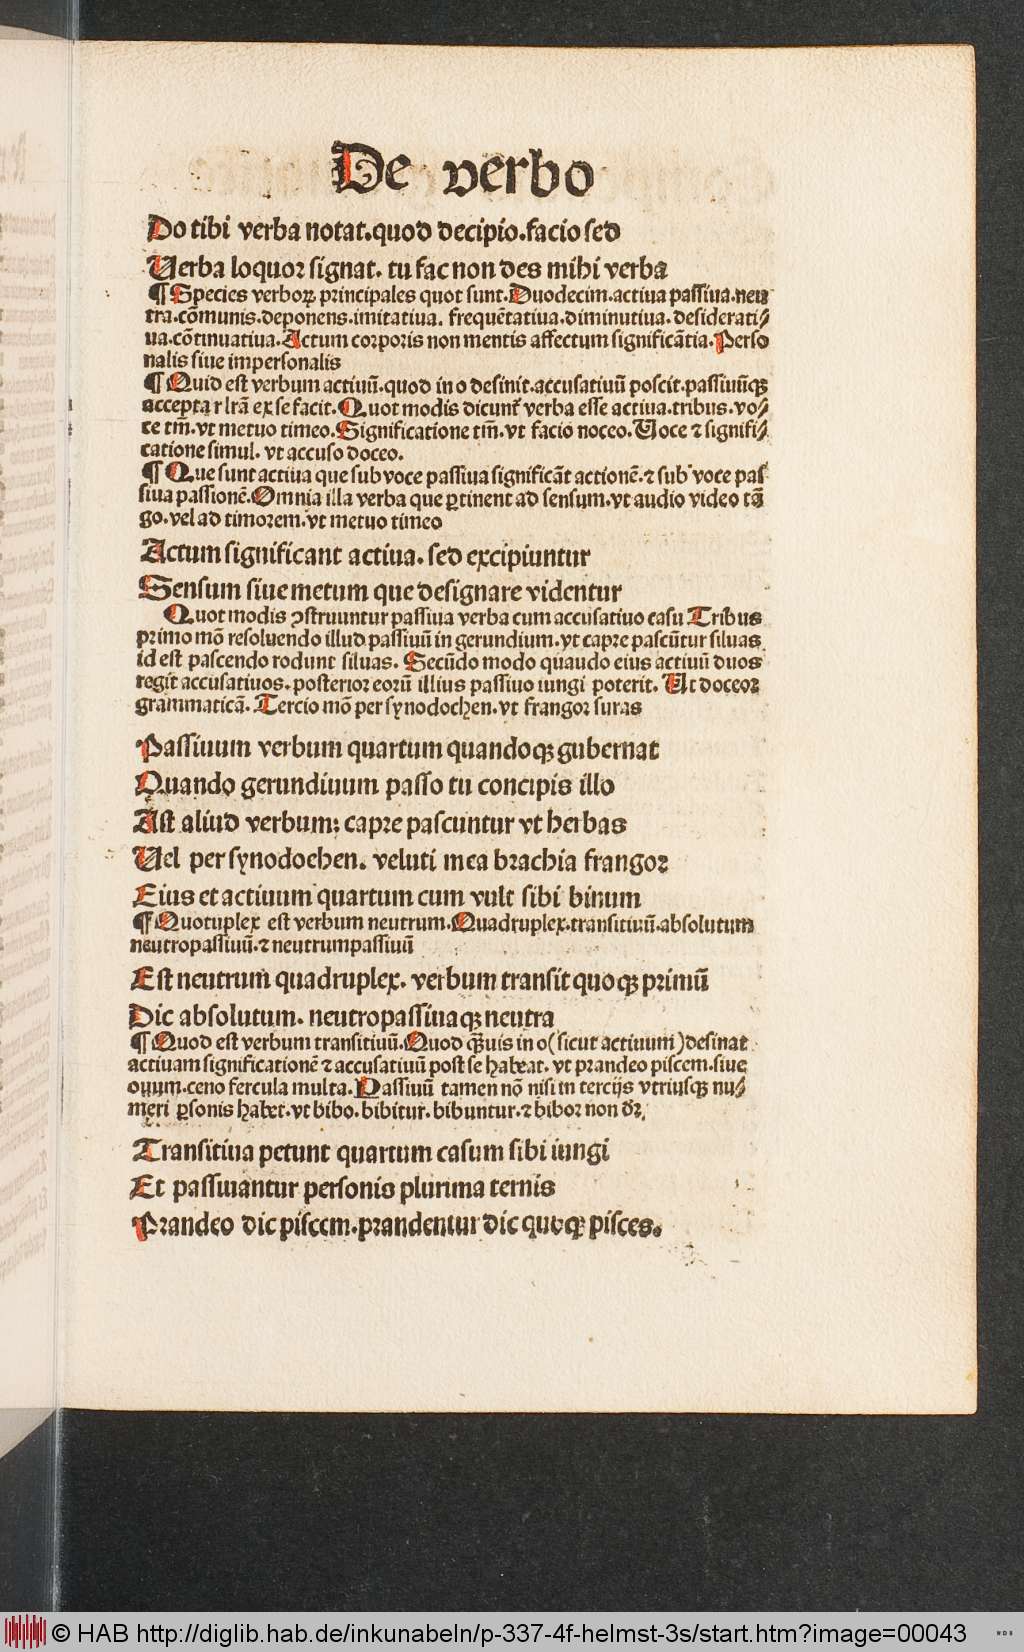 De verbo
Do tibi verba notat.quod decipio.facio sed
Uerba loquor signat. tu fac non des mihi verba
¶ Species verboꝝ principales quot sunt.Duodecim.actiua passiua.neu
tra.cōmunis.deponens.imitatiua. frequētatiua.diminutiua.desiderati⸗
ua.cōtinuatiua.Actum corporis non mentis affectum significātia.Perso
nalis siue impersonalis
¶ Quid est verbum actiuū.quod in o desinit.accusatiuū poscit.passiuūqꝫ
accepta r lr̄a ex se facit.Quot modis dicunt᷑ verba esse actiua.tribus.vo⸗
ce tm̄.vt metuo timeo.Significatione tm̄.vt facio noceo.Uoce ⁊ signifi⸗
catione simul. vt accuso doceo.
¶ Que sunt actiua que sub voce passiua significāt actionē.⁊ sub voce pas
siua passionē.Omnia illa verba que ꝑtinent ad sensum.vt audio video tā
go.vel ad timorem.vt metuo timeo
Actum significant actiua.sed excipiuntur
Sensum siue metum que designare videntur
Quot modis ꝯstruuntur passiua verba cum accusatiuo casu Tribus
primo mō resoluendo illud passiuū in gerundium.vt capre pascūtur siluas
id est pascendo rodunt siluas. Secūdo modo quaudo eius actiuū duos
regit accusatiuos.posterior eorū illius passiuo iungi poterit. Ut doceor
grammaticā. Tercio mō per synodochen.vt frangor suras
Passiuum verbum quartum quandoqꝫ gubernat
Quando gerundiuum passo tu concipis illo
Ast aliud verbum: capre pascuntur vt herbas
Uel per synodochen. veluti mea brachia frangor
Eius et actiuum quartum cum vult sibi binum
¶ Quotuplex est verbum neutrum.Quadruplex.transitiuū.absolutum
neutropassiuū.⁊ neutrumpassiuū
Est neutrum quadruplex. verbum transit quoqꝫ primū
Dic absolutum. neutropassiuaqꝫ neutra
¶ Quod est verbum transitiuū.Quod qꝫuis in o(sicut actiuum)desinat
actiuam significationē ⁊ accusatiuū post se habeat. vt prandeo piscem.siue
ouum.ceno fercula multa.Passiuū tamen nō nisi in tercijs vtriusqꝫ nu⸗
meri ꝑsonis habet.vt bibo.bibitur.bibuntur.⁊ bibor non dr̄.
Transitiua petunt quartum casum sibi iungi
Et passiuantur personis plurima ternis
Prandeo dic piscem.prandentur dic quoqꝫ pisces.
© HAB http://diglib.hab.de/inkunabeln/p-337-4f-helmst-3s/start.htm?image=00043